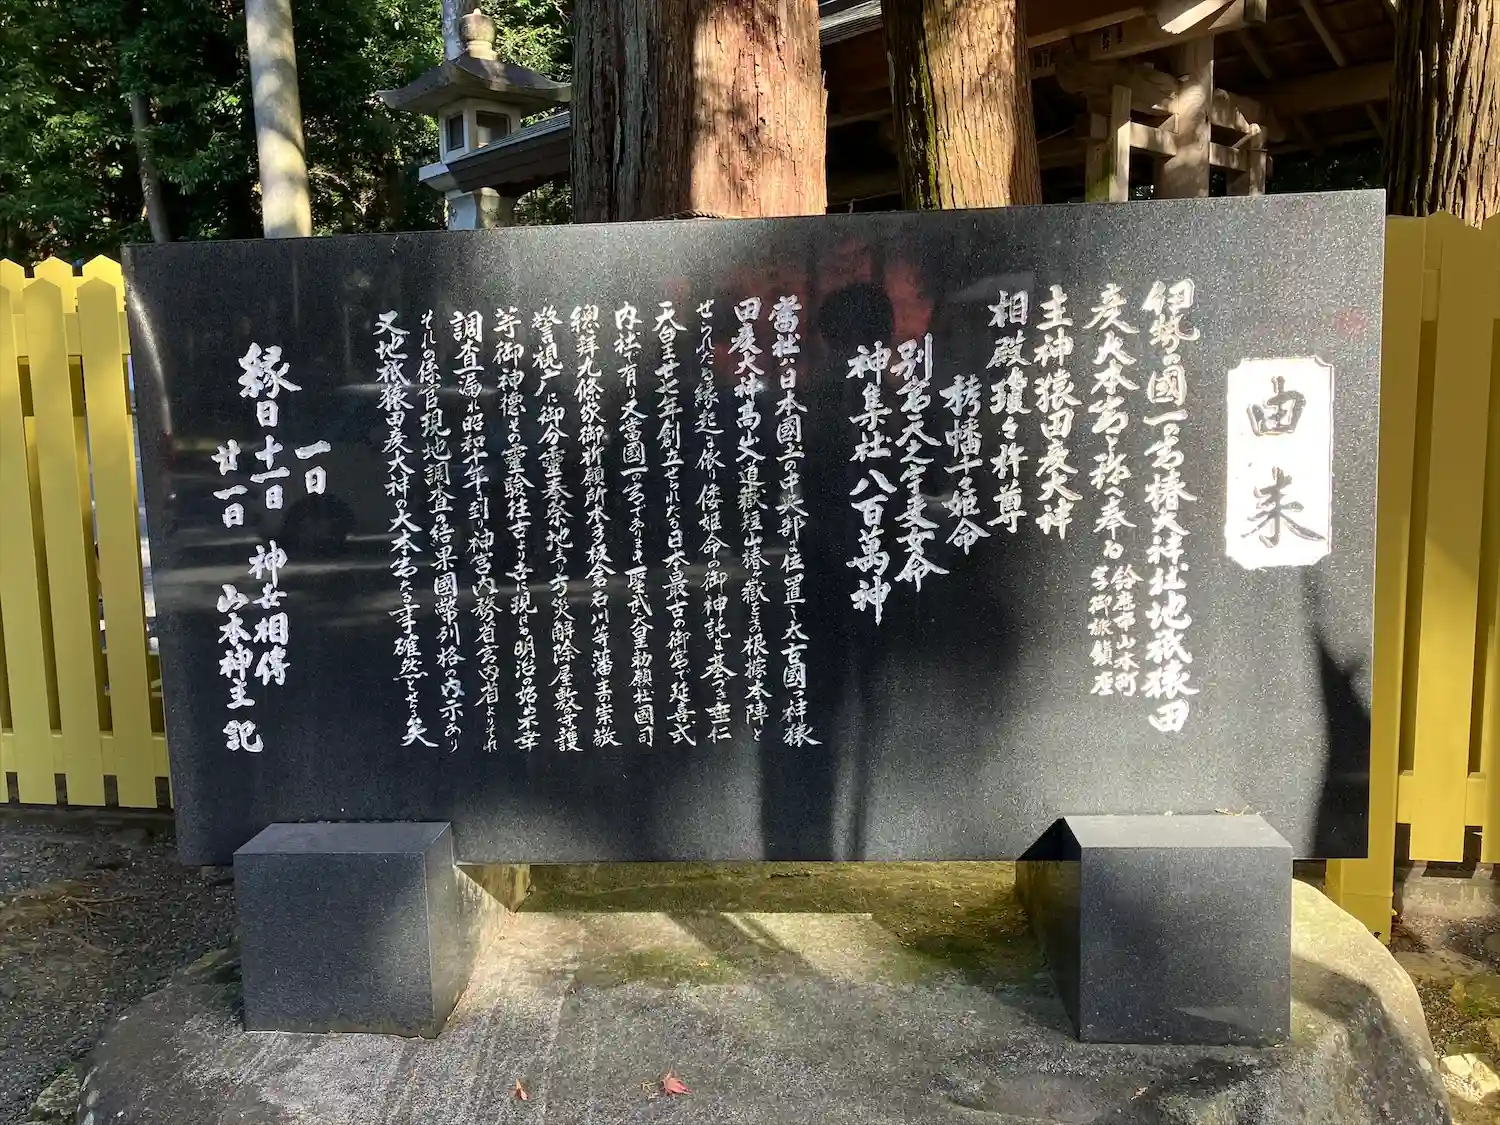 由来
伊勢の國一の宮椿大神社地祇猿田
彦大本宮と称へ奉る 鈴鹿市山本町
主神猿田彦大神
相殿瓊々杵尊
栲幡千々姫命
別宮天之宇受女命
神集社八百萬神
當社は日本國土の中央部に位置し太古國つ神猿
田彦大神高山入道嶽短山椿ヶ嶽をその根據本陣と
せられたる縁起に依り倭姫命の御神託に基づき垂仁
天皇廿七年創立せられたる日本最古の御宮で延喜式
内社で有り又當國一の宮であります聖武天皇勅願社國司
總拝九條家御祈願所本多板倉石川等藩主の崇敬
警視庁に御分霊奉祭地まつり方災解除屋敷の守護
等御神徳その霊験往古より古に現はる明治の始め不幸
調査漏れ昭和十年に到り神宮内務省宮内省よりそれ
それの係官現地調査の結果國幣列格の内示あり
又地祇猿田彦大神の大本宮たる事確然たる矣
一日
縁日十一日 神世相傳
廿一日 山本神主 記